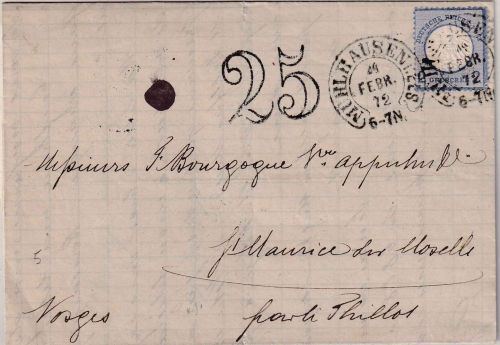 25
MÜHLHAUSEN i. ELS.
24
FEBR.
72
6-7N.
DEUTSCHE REICHS
GROSCHEN
FEBR.
72
6-7N
Messieurs F. Bourgogne
St Maurice sur Moselle
5
Vosges
par le Thillot